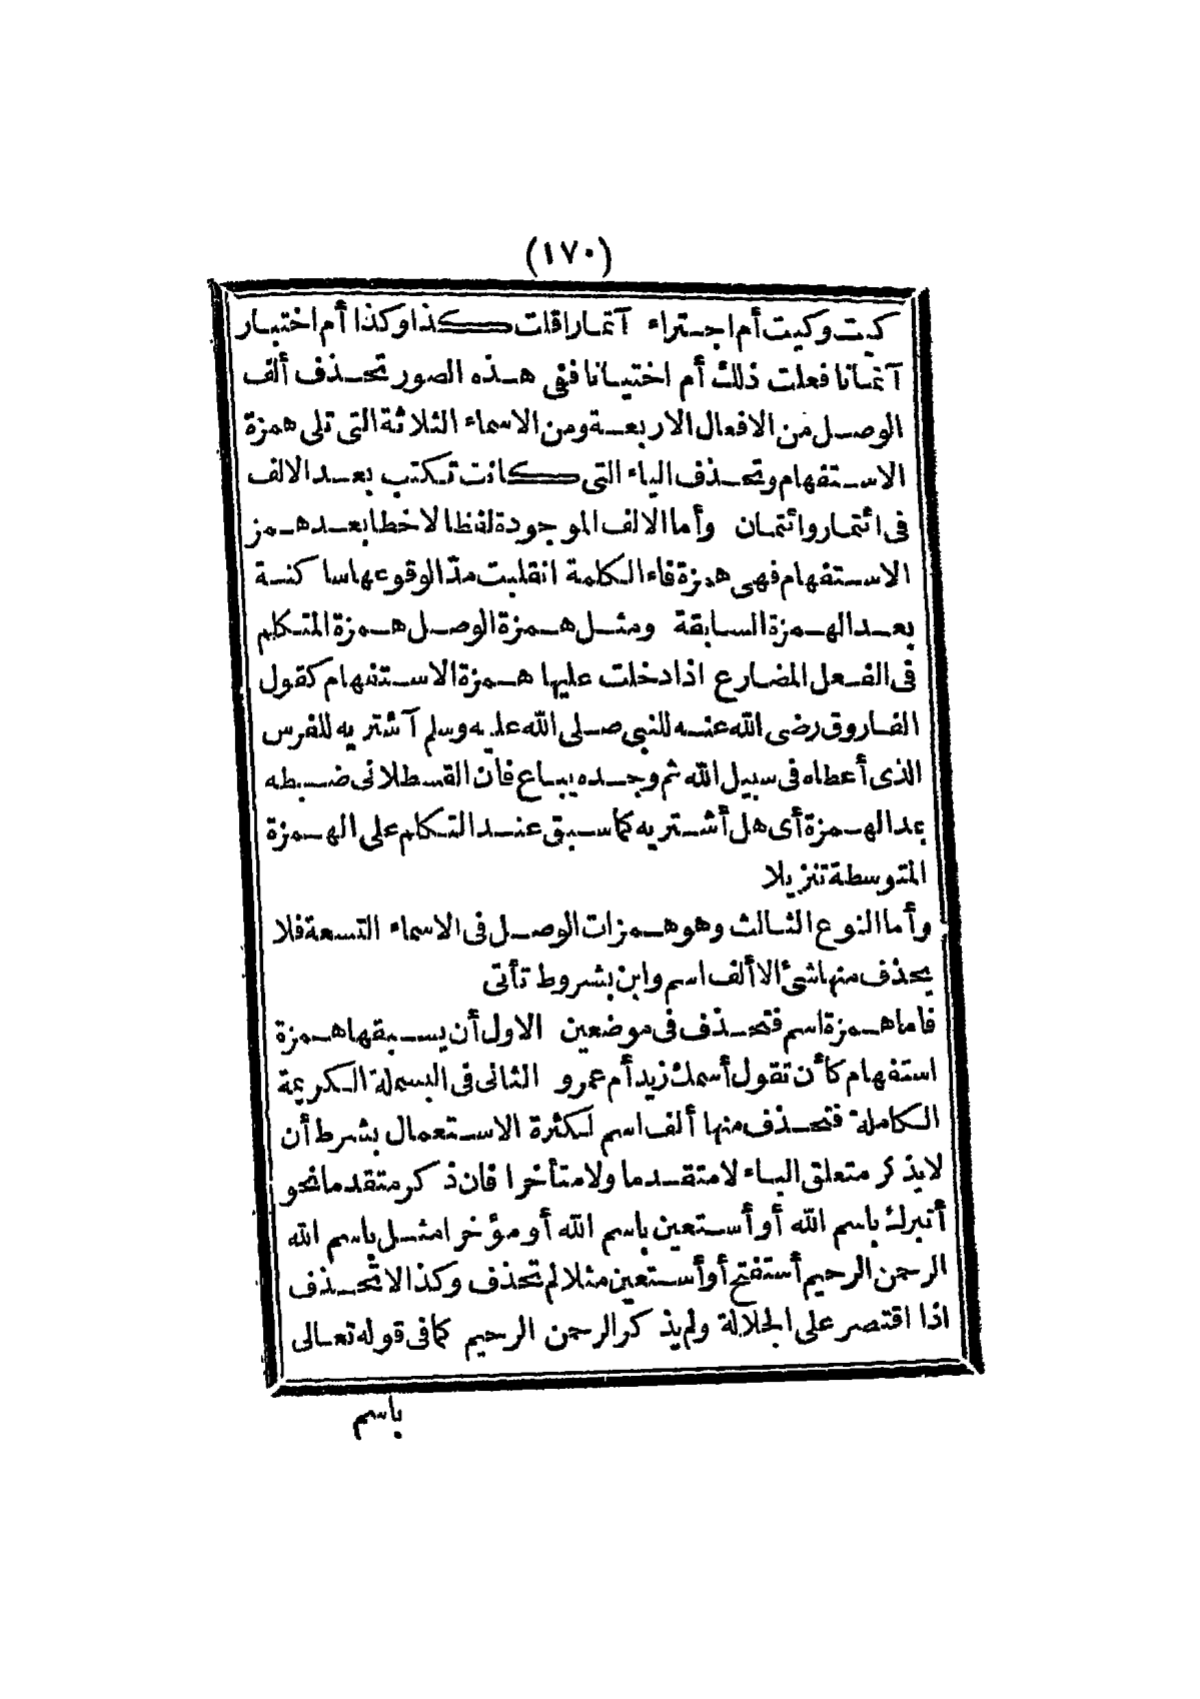 (١٧٠)
كيت وكيت أم اجتراء آتمارا قلت كذا وكذا أم اختيار
آتمانا فعلت ذلك أم اختيانا ففى هذه الصور تحذف ألف
الوصل من الافعال الاربعة ومن الاسماء الثلاثة التى تلى همزة
الاستفهام وتحذف الياء التى كانت تكتب بعد الالف
فى ائتمار وائتمان وأما الالف الموجودة لفظا لا خطا بعد همز
الاستفهام فهى همزة فاء الكلمة انقلبت مدّا لوقوعها ساكنة
بعد الهمزة السابقة ومثل همزة الوصل همزة المتكلم
فى الفعل المضارع اذا دخلت عليها همزة الاستفهام كقول
الفاروق رضى الله عنه للنبى صلى الله عليه وسلم آشتريه للفرس
الذى أعطاه فى سبيل الله ثم وجده يباع فان القسطلانى ضبطه
بمد الهمزة أى هل أشتريه كما سبق عند التكلم على الهمزة
المتوسطة تنزيلا
وأما النوع الثالث وهو همزات الوصل فى الاسماء التسعة فلا
يحذف منها شئ الا ألف اسم وابن بشروط تأتى
فاما همزة اسم فتحذف فى موضعين الاول أن يسبقها همزة
استفهام كأن تقول أسمك زيد أم عمرو الثانى فى البسملة الكريمة
الكاملة فتحذف منها ألف اسم لكثرة الاستعمال بشرط أن
لا يذكر متعلق الباء لا متقدما ولا متأخرا فان ذكر متقدما نحو
أتبرك باسم الله أو أستعين باسم الله أو مؤخرا مثل باسم الله
الرحمن الرحيم أستفتح أو أستعين مثلا لم تحذف وكذا لا تحذف
اذا اقتصر على الجلالة ولم يذكر الرحمن الرحيم كما فى قوله تعالى
باسم